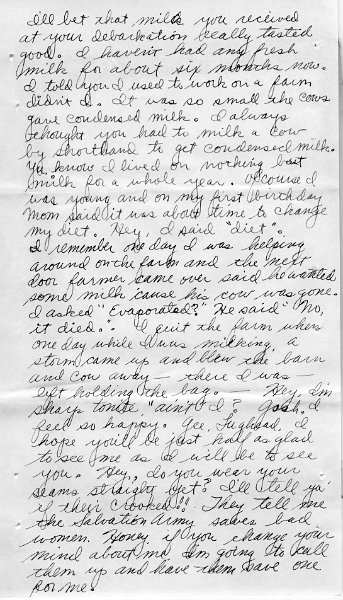 I'll bet that milk you received
at your debarkation really tasted
good. I haven't had any fresh
milk for about six months now.
I told you I used to work on a farm
didn't I. It was so small the cows
gave condensed milk. I always
thought you had to milk a cow
by shorthand to get condensed milk.
Ya know I lived on nothing but
milk for a whole year. Ofcourse I
was young and on my first birthday
Mom said it was about time to change
my diet. Hey, I said "diet".
I remember one day I was helping
around on the farm and the next
door farmer came over said he wanted
some milk 'cause his cow was gone.
I asked "Evaporated?" He said "No,
it died." I quit the farm when
one day while I was milking, a
storm came up and blew the barn
and cow away - there I was
left holding the bag. Hey, I'm
sharp tonite "ain't I? Gosh, I
feel so happy. Gee, Jughead, I
hope you'll be just half as glad
to see me as I will be to see
you. Hey, do you wear your
seams straight yet? I'll tell ya'
if their crooked!! They tell me
the Salvation Army saves bad
women. Honey if you change your
mind about me I'm going to call
them up and have them save one
for me.